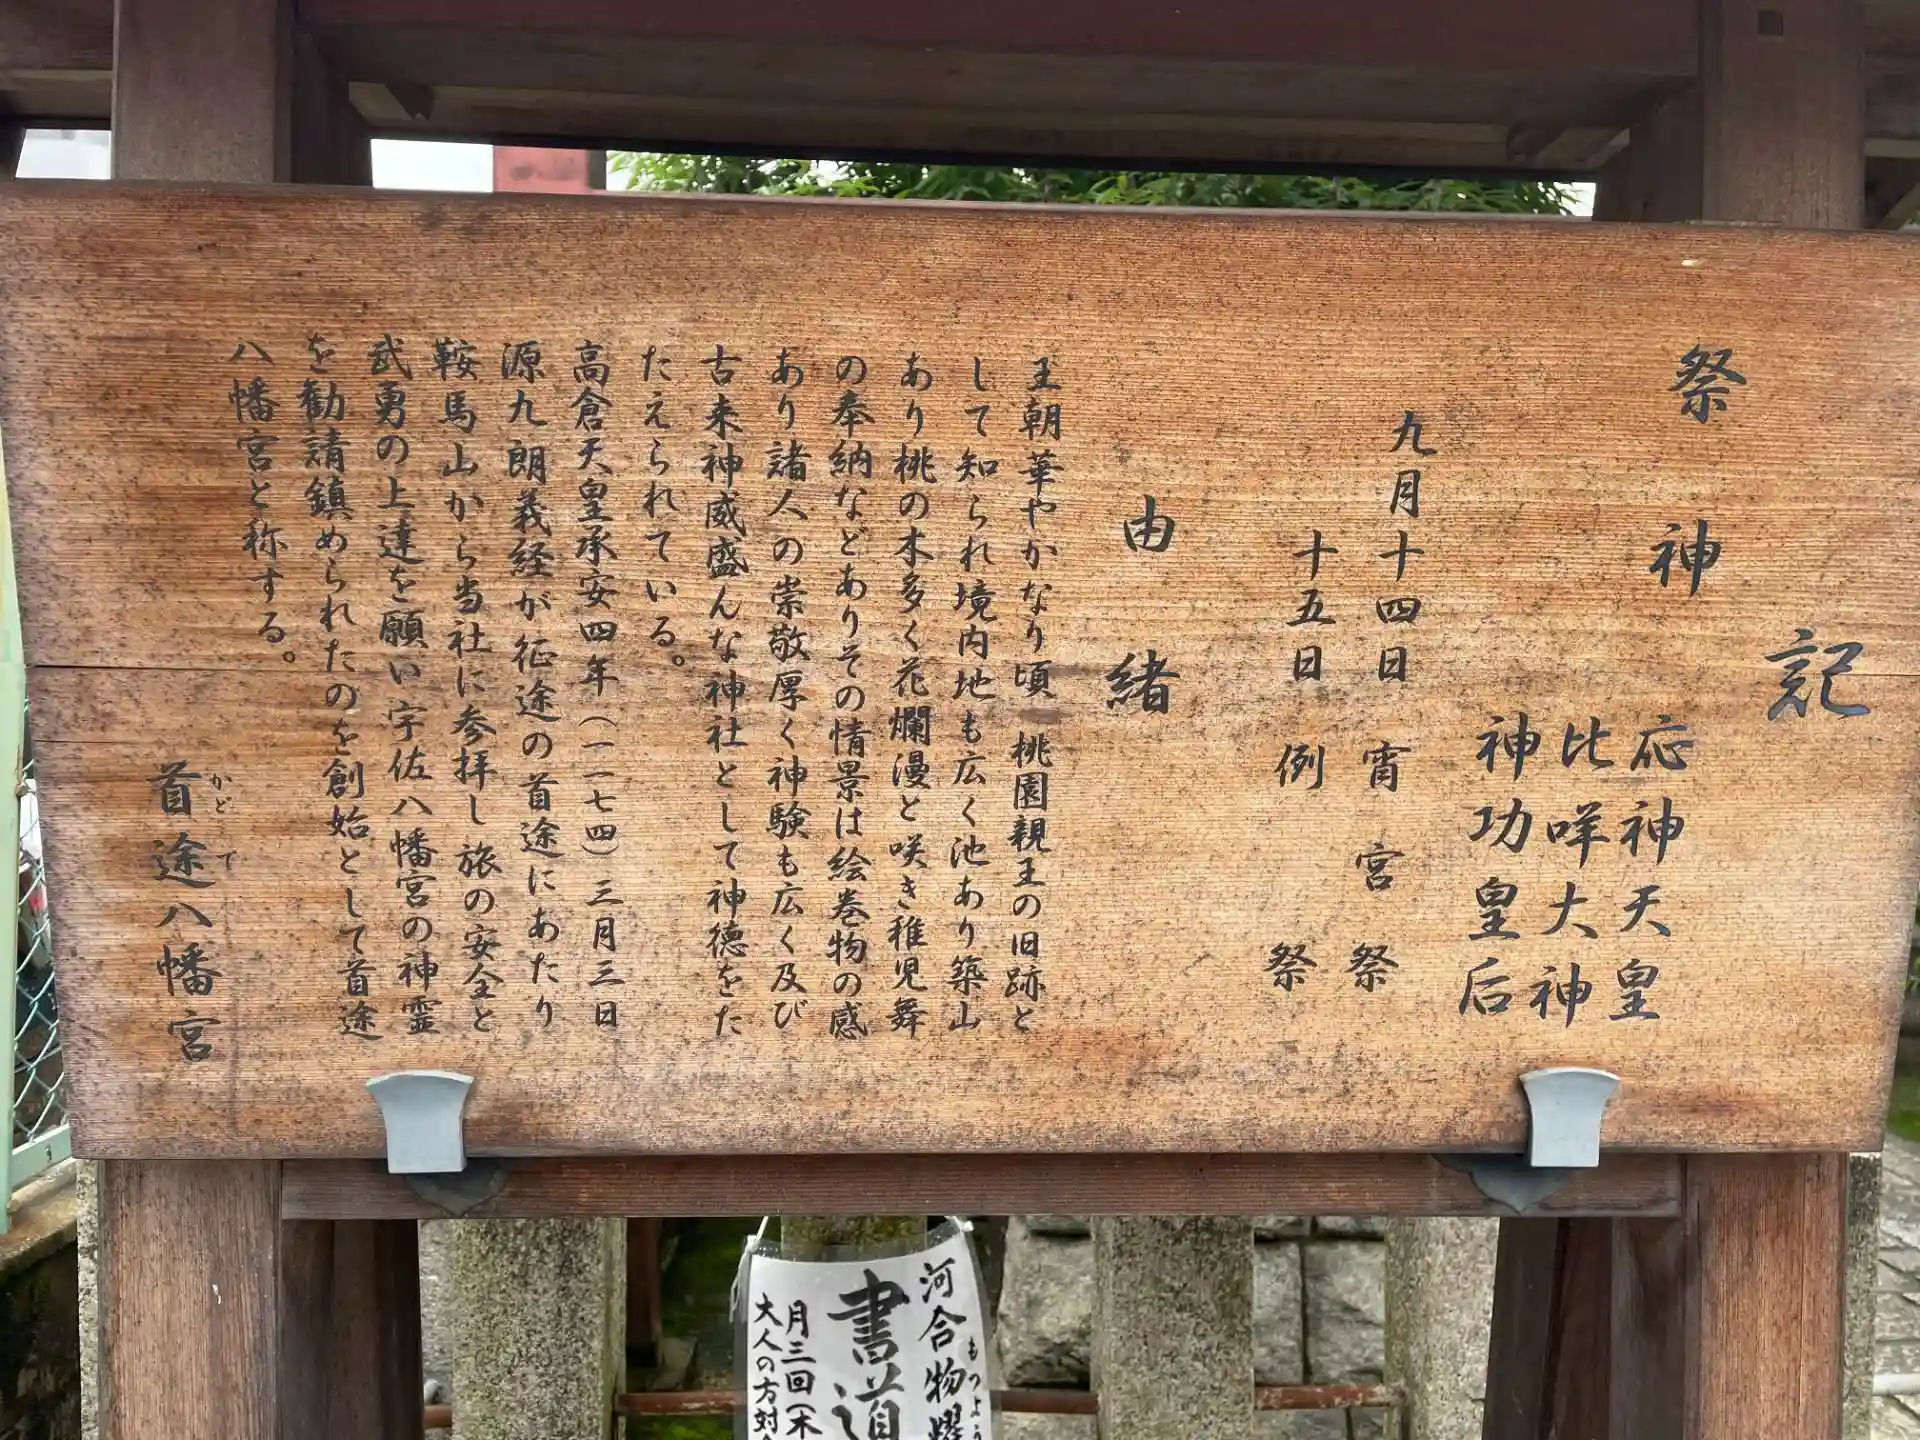 記
祭神
応神天皇
比咩大神
神功皇后
九月十四日 宵宮祭
十五日 例祭
由緒
王朝華やかなり頃 桃園親王の旧跡と
して知られ境内地も広く池あり築山
あり桃の木多く花爛漫と咲き稚児舞
の奉納などありその情景は絵巻物の感
あり諸人の崇敬厚く神験も広く及び
古来神威盛んな神社として神徳をた
たえられている。
高倉天皇承安四年(一一七四)三月三日
源九朗義経が征途の首途にあたり
鞍馬山から当社に参拝し旅の安全と
武勇の上達を願い宇佐八幡宮の神霊
を勧請鎮められたのを創始として首途
八幡宮と称する。
かどで
首途八幡宮
河合物
もつよう
書道
月三回(木
大人の方対